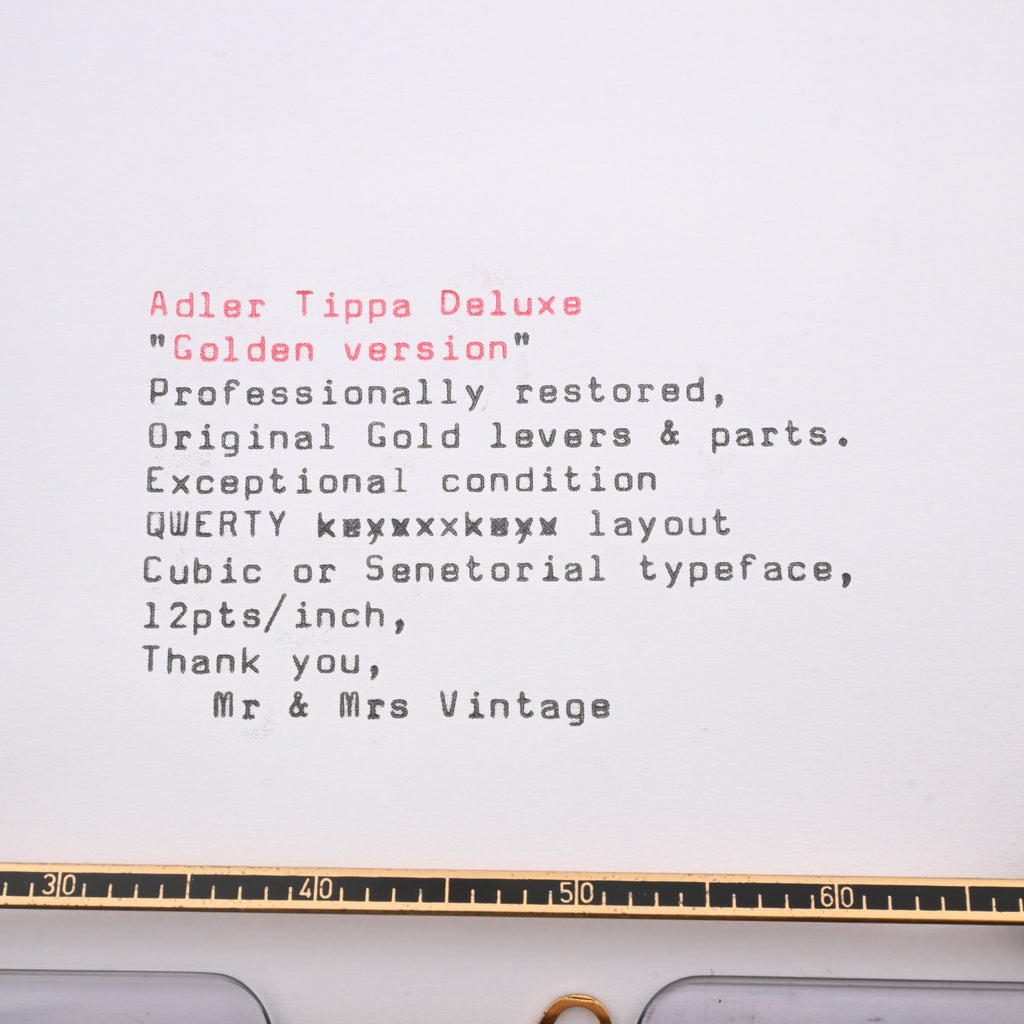 Adler Tippa Deluxe
"Golden version"
Professionally restored,
Original Gold levers & parts.
Exceptional condition
QWERTY layout
Cubic or Senetorial typeface,
12pts/inch,
Thank you,
Mr & Mrs Vintage
30 40 50 60